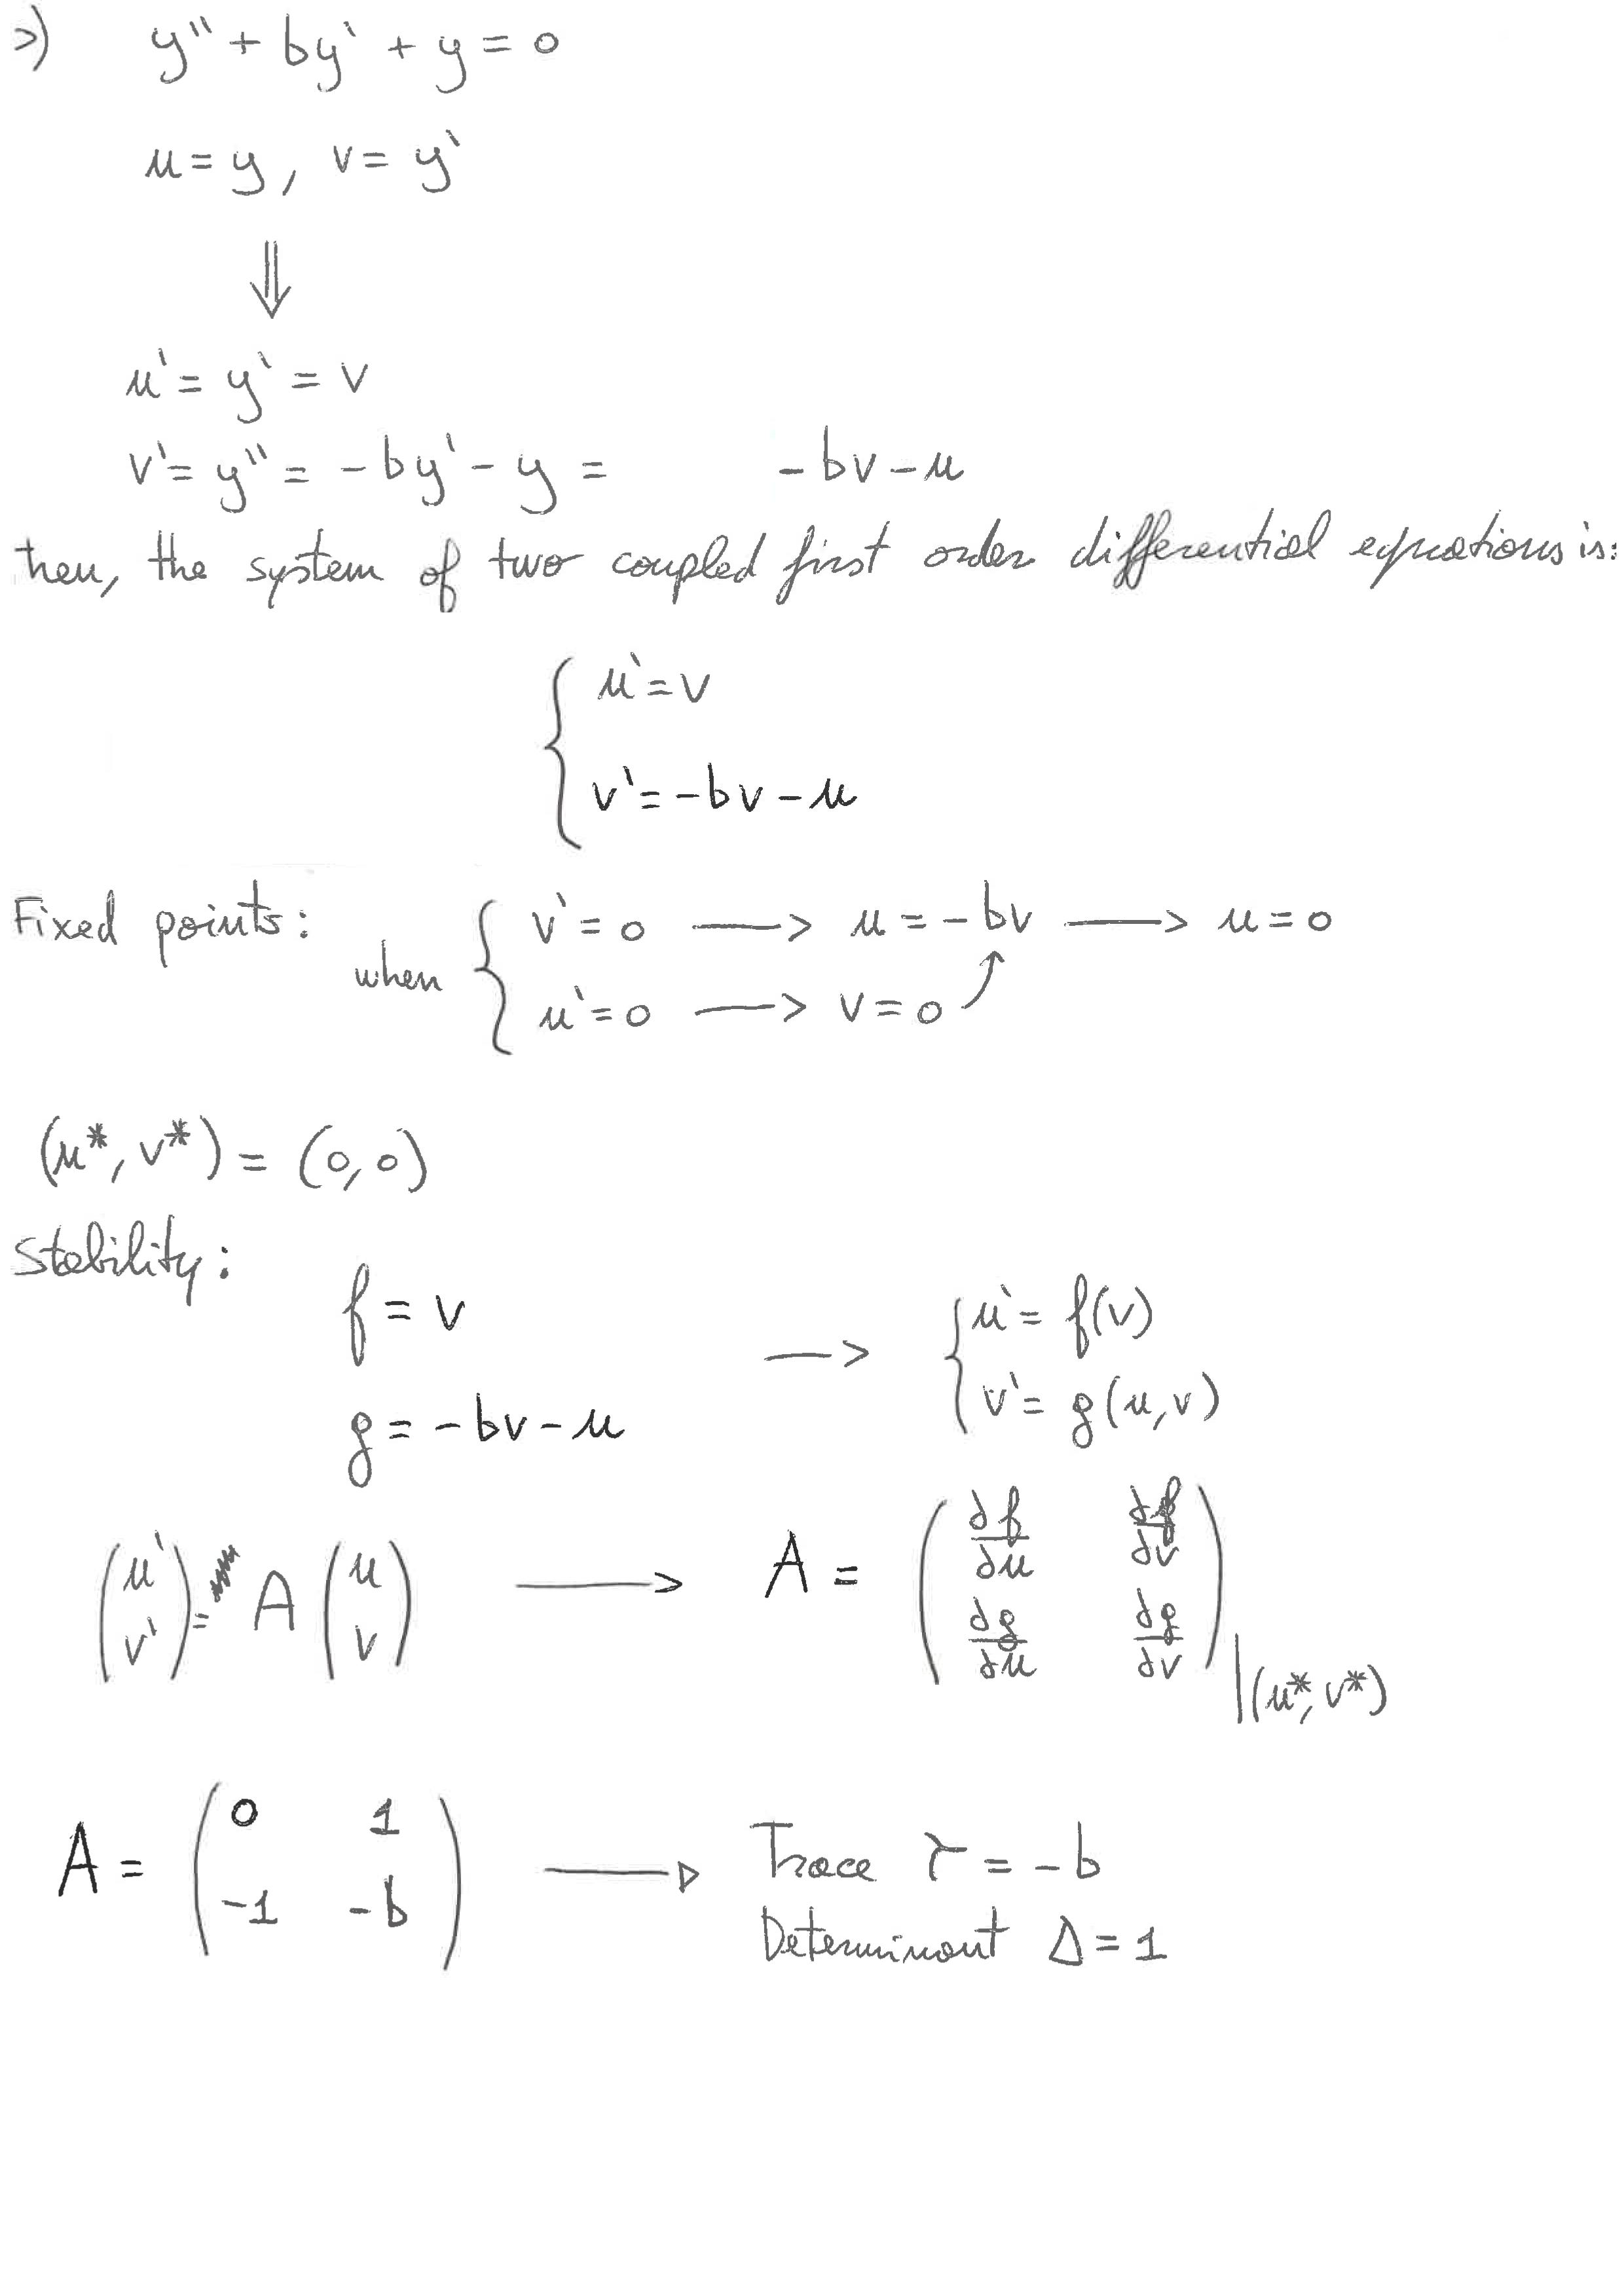 >) y'' + by' + y = 0
u = y, v = y'
⇓
u' = y' = v
v' = y'' = -by' - y = -bv - u
hen, the system of two coupled first order differential equations is:
{ u' = v
v' = -bv - u
Fixed points: when { v' = 0 → u = -bv → u = 0
u' = 0 → v = 0
(u*, v*) = (0, 0)
Stability:
f = v → { u' = f(v)
g = -bv - u v' = g(u, v)
(u' v') = A (u v) → A = (∂f/∂u ∂f/∂v ∂g/∂u ∂g/∂v) |(u*, v*)
A = (0 1 -1 -b) → Trace τ = -b
Determinant Δ = 1